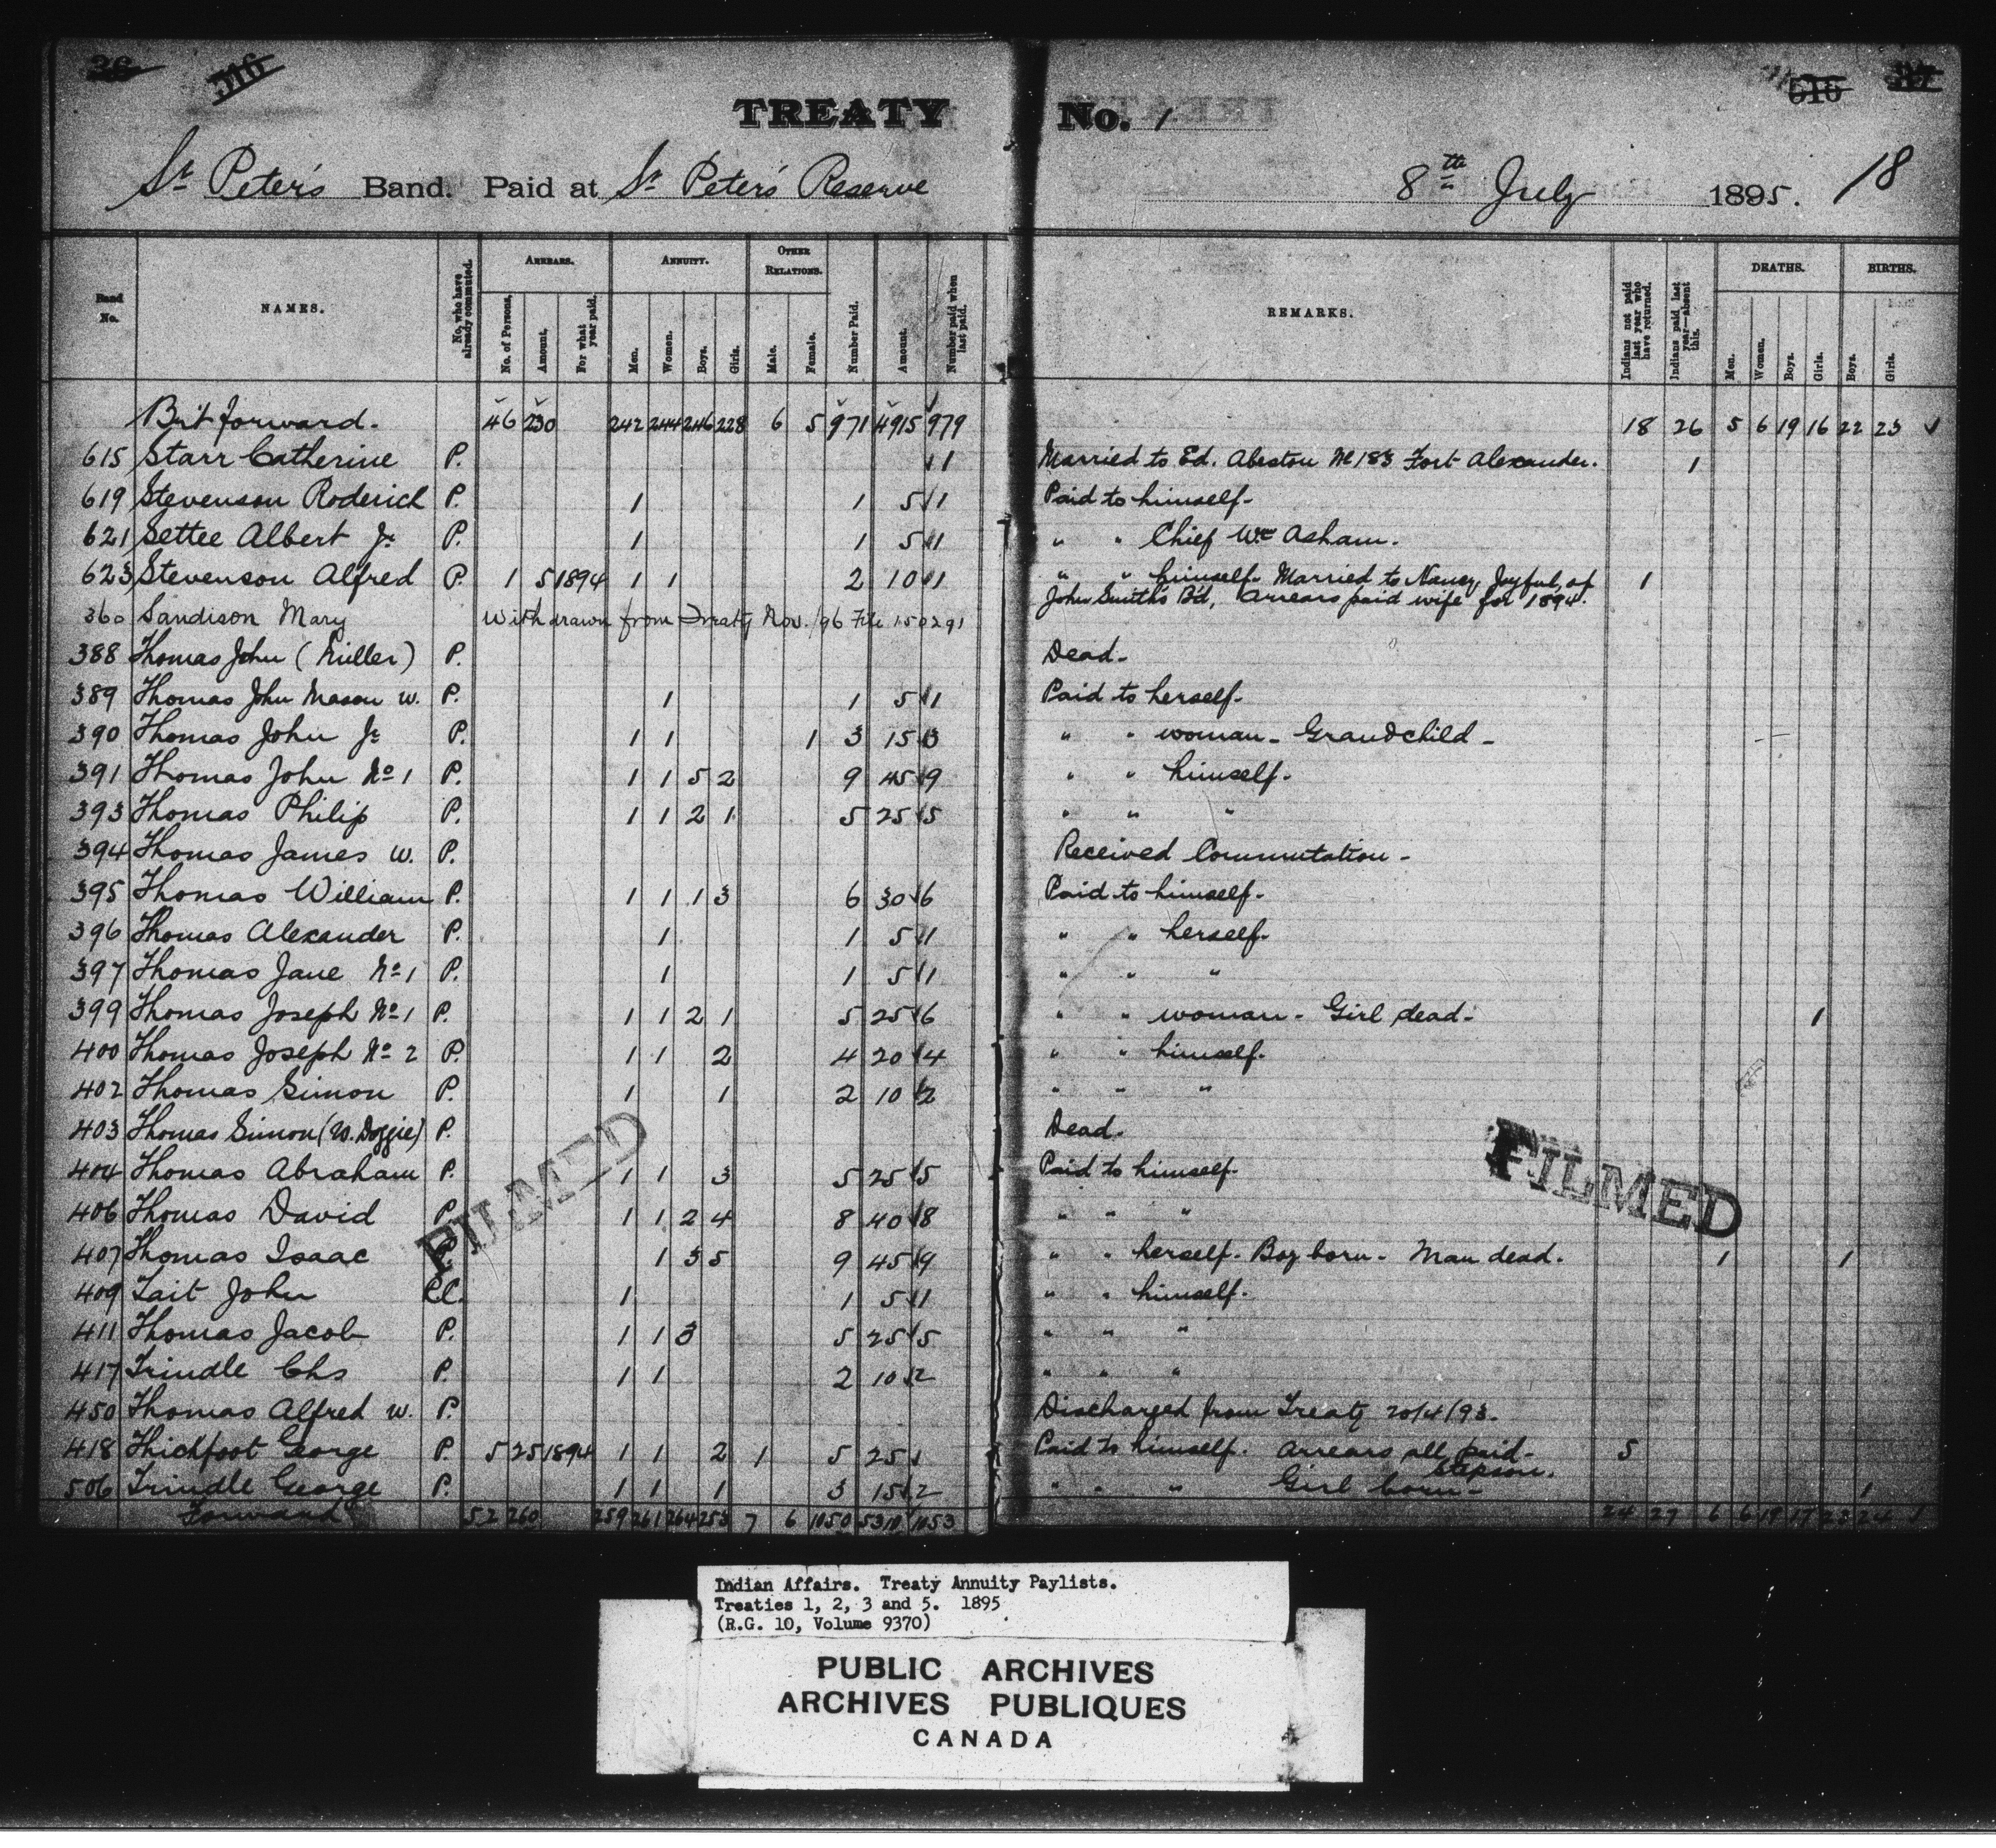 36 516 516 37
TREATY No. 1
St Peter's Band. Paid at St Peter's Reserve 8th July 1895. 18
Band No. NAMES. No. who have already commuted. ARREARS. No. of Persons. Amount. For what year paid. ANNUITY. Men. Women. Boys. Girls. OTHER RELATIONS. Male. Female. Number Paid. Amount. Number paid when last paid. REMARKS. Indians not paid last year who have returned. Indians paid last year—absent this. DEATHS. Men. Women. Boys. Girls. BIRTHS. Boys. Girls.
Brt forward. 46 230 242 244 246 228 6 5 971 4915 979 18 26 5 6 19 16 22 23 ✓
615 Starr Catherine P. 1 Married to Ed. Abeston No 183 Fort Alexander. 1
619 Stevenson Roderick P. 1 1 5 1 Paid to himself.
621 Settee Albert Jr P. 1 1 5 1 " " Chief Wm Asham.
623 Stevenson Alfred P. 1 5 1894 1 1 2 10 1 " " himself. Married to Nancy Joyful, of 1
John Smith's Bd, Arrears paid wife for 1894.
360 Sandison Mary Withdrawn from Treaty Nov. /96 File 150291
388 Thomas John (Miller) P. Dead.
389 Thomas John Mason W. P. 1 1 5 1 Paid to herself.
390 Thomas John Jr P. 1 1 1 3 15 3 " " woman - Grandchild -
391 Thomas John No 1 P. 1 1 5 2 9 45 9 " " himself.
393 Thomas Philip P. 1 1 2 1 5 25 5 " " "
394 Thomas James W. P. Received Commutation -
395 Thomas William P. 1 1 1 3 6 30 6 Paid to himself.
396 Thomas Alexander P. 1 1 5 1 " " herself.
397 Thomas Jane No 1 P. 1 1 5 1 " " "
399 Thomas Joseph No 1 P. 1 1 2 1 5 25 6 " " woman - Girl dead. 1
400 Thomas Joseph No 2 P. 1 1 2 4 20 4 " " himself.
402 Thomas Simon P. 1 1 2 10 2 " " "
403 Thomas Simon (W. Doggie) P. Dead.
404 Thomas Abraham P. 1 1 3 5 25 5 Paid to himself.
406 Thomas David P. 1 1 2 4 8 40 8 " " "
407 Thomas Isaac P. 1 3 5 9 45 9 " " herself. Boy born - Man dead. 1 1
409 Tait John P.C. 1 1 5 1 " " himself.
411 Thomas Jacob P. 1 1 3 5 25 5 " " "
417 Trindle Chs P. 1 1 2 10 2 " " "
450 Thomas Alfred W. P. Discharged from Treaty 20/4/93.
418 Thickfoot George P. 5 25 1894 1 1 2 1 5 25 Paid to himself. Arrears all paid - stepson. 5
506 Trindle George P. 1 1 1 3 15 2 " " " Girl born - 1
Forward 52 260 259 261 264 253 7 6 1050 5310 1053 24 27 6 6 19 17 23 24 1
FILMED
FILMED
Indian Affairs. Treaty Annuity Paylists.
Treaties 1, 2, 3 and 5. 1895
(R.G. 10, Volume 9370)
PUBLIC ARCHIVES
ARCHIVES PUBLIQUES
CANADA